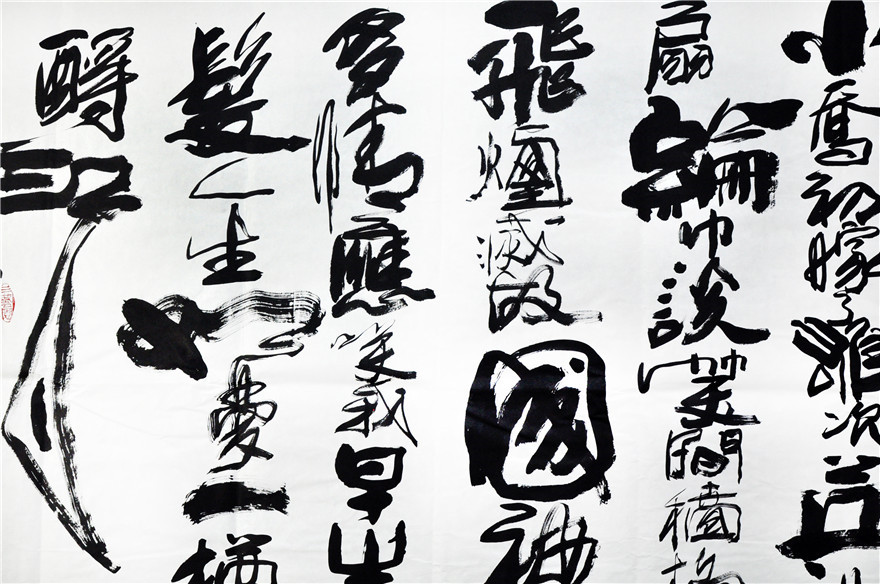 小喬初嫁了雄姿
扇綸巾談笑間檣
飛煙滅故國神
多情應笑我早生
髮人生如夢一樽
酹江月